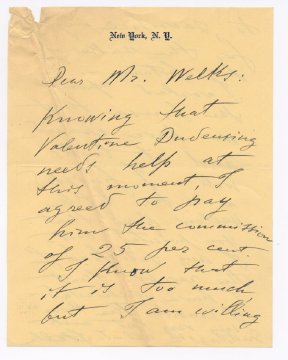 New York, N. Y.
Dear Mr. Welks:
Knowing that
Valentine Dudensing
needs help at
this moment, I
agreed to pay
him the commission
of 25 per cent
I know that
it is too much
but I am willing